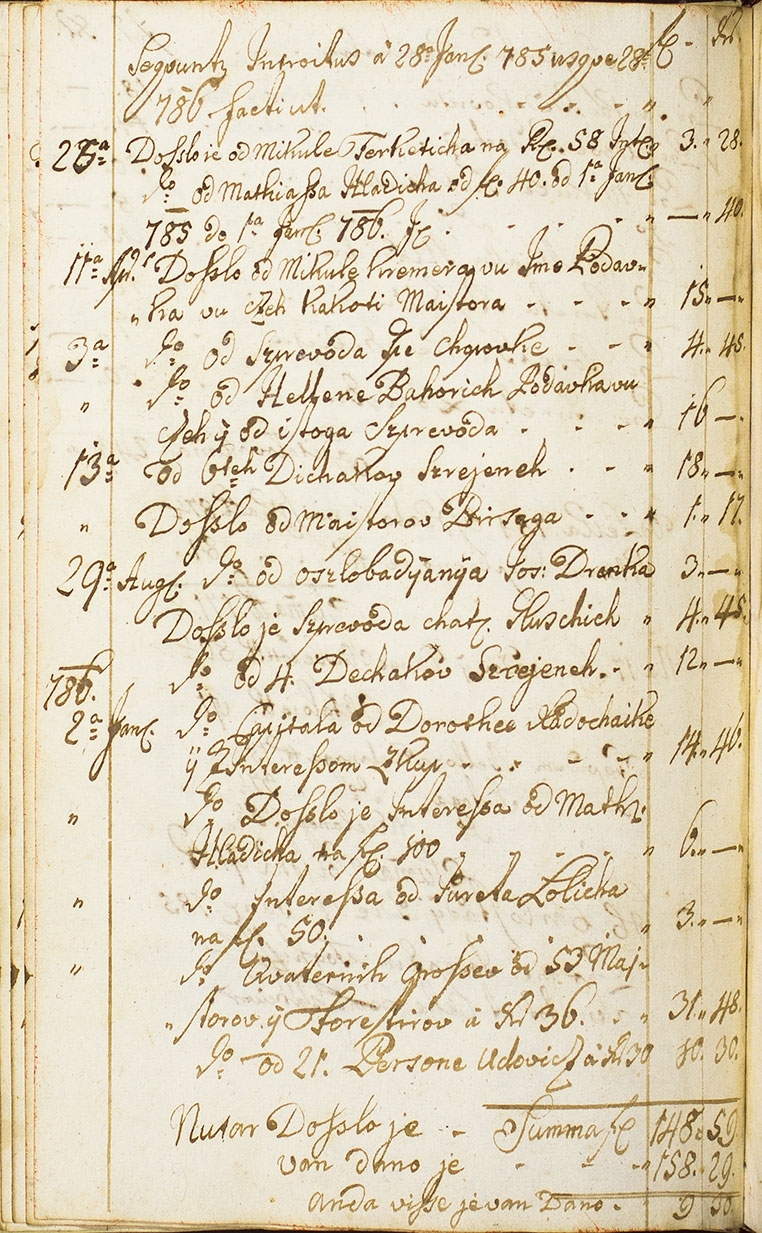 Seqvuntz Introitus a 28a Janr. 785 usqve 28a fl. - Xr.
786 facti ut. . . . „ „
25a Dosslo je od Mikule Terketicha na fl. 58 Int. „ 3. „ 28.
do od Mathiassa Hladicha od fl. 40. od 1a Janr.
785 do 1a Janr. 786. „ — „ 40.
11a Apr. Dosslo od Mikule Kremera vu Ime Podav„
„ka vu Czeh kakoti Maistora - - - „ 15 „ — „
3a do od Szprevoda - - „ 4. „ 45.
„ do od Hellene Bahorich Podavka vu
Czeh ÿ od istoga Szprevoda . - - „ 16 — .
13a od 6teh Dichakov Szrejeneh . - - „ 18 „ — „
„ Dosslo od Maistorov Birsaga - - „ 1. „ 17.
29a Aug. do od oszlobadÿanÿa Jos: Drenka 3. „ — „
Dosslo je Szprevoda Sluschich „ 4. „ 45.
786. do od 4. Dechakov Szrejeneh. - „ 12 „ — „
2a Janr. do Capitala od Dorothee Radochaike
ÿ Z Interessom Zkup - . . - - „ 14. „ 46.
„ do Dosslo je Interessa od Math:
Hladicha na fl. 100 - - - „ 6. „ — „
„ do Interessa od Jureta Zolicha
na fl. 50. . . . „ 3. „ — „
„ do Kvaternih Grossev od 53 Maj„
„storov ÿ Forestirov a Xr 36. . - „ 31. „ 48.
do od 21. Persone Udovicz a Xr 30 10. 30.
Nutar Dosslo je - Summa fl. 148. 59
van dano je - - - „ 158. 29.
anda visse je van Dano - 9 30.